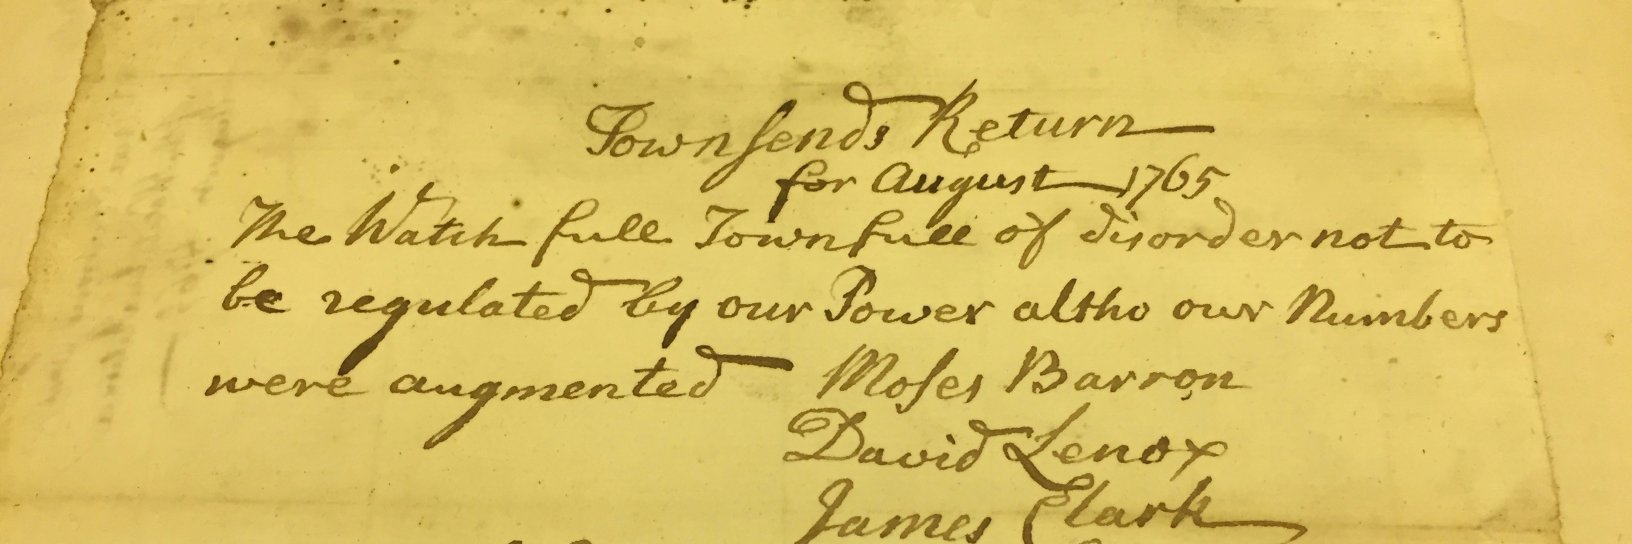 Townsends Return
for August 1765
The Watch full Town full of disorder not to
be regulated by our Power altho our Numbers
were augmented Moses Barron
David Lenox
James Clark